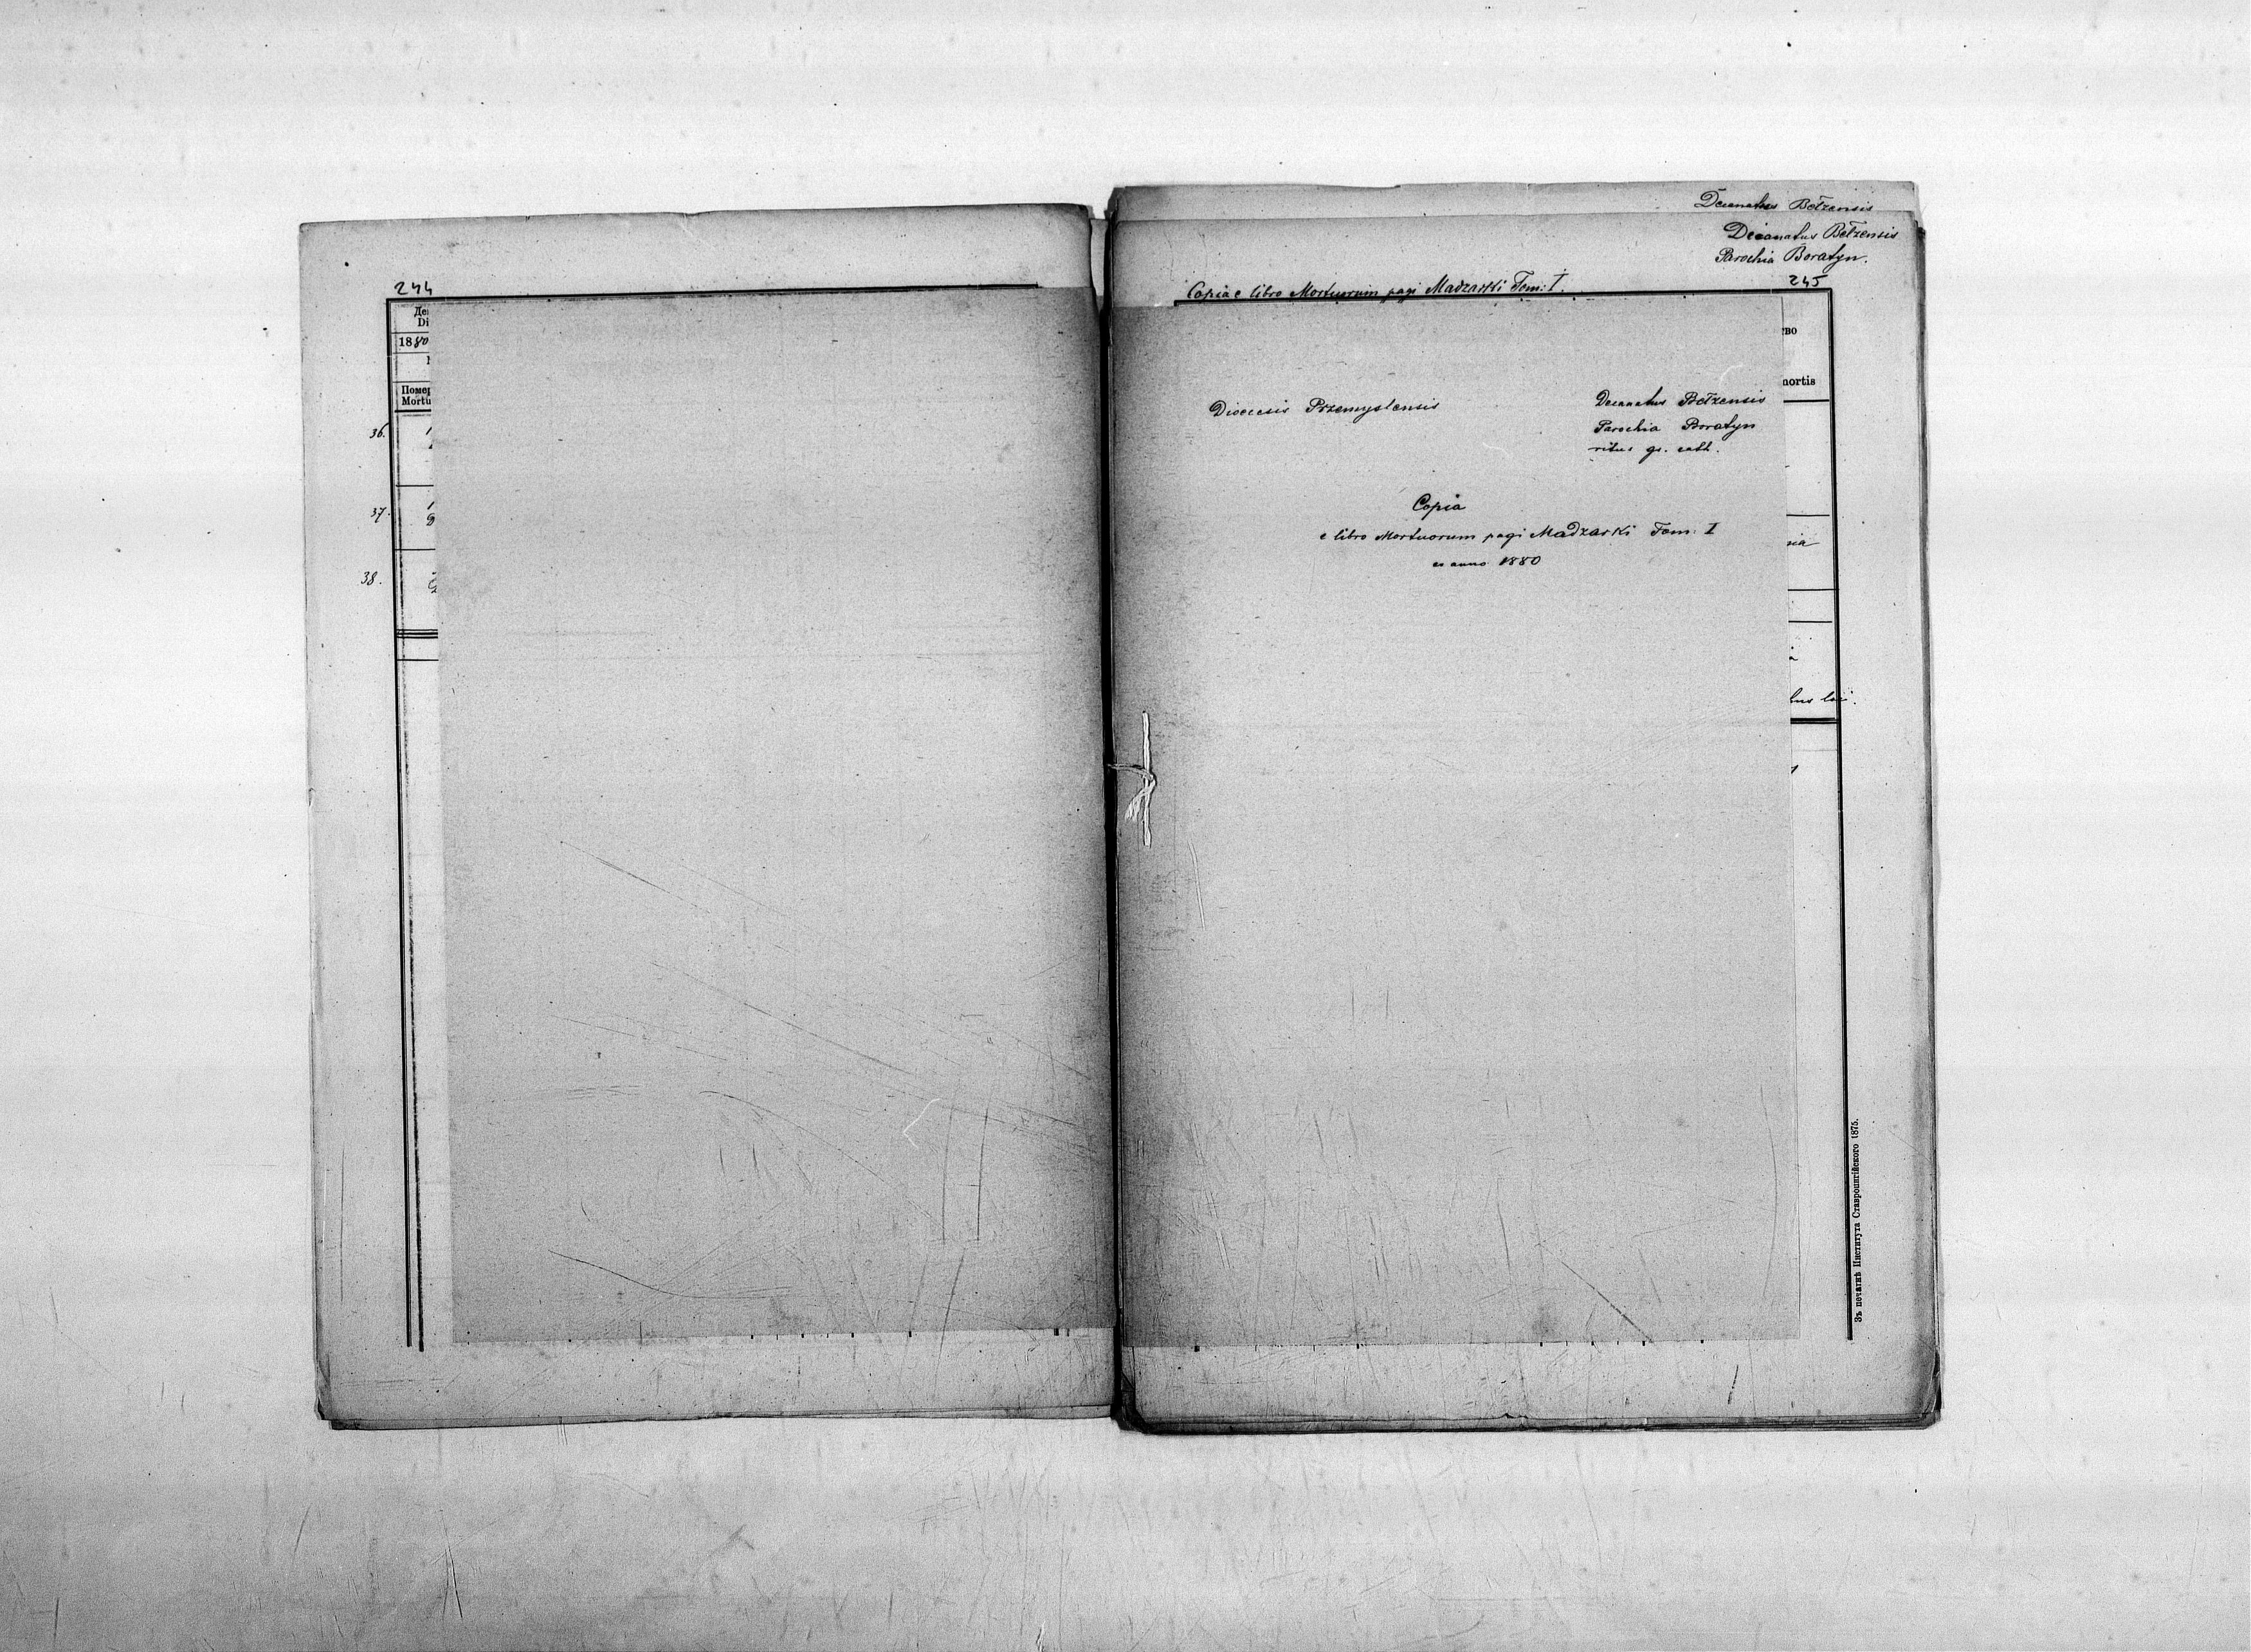 244
Ден
Di
1880
Помер
Mortu
36.
37.
38.
Decanatus Bełzensis
Decanatus Bełzensis
Parochia Boratyn.
Copia e libro Mortuorum pagi Madzarki Tom: I.
245
тво
mortis
Dioecesis Przemyslensis
Decanatus Bełzensis
Parochia Boratyn
ritus gr. cath.
Copia
e libro Mortuorum pagi Madzarki Tom: I
ex anno 1880
Зъ печатнѣ Института Ставропигійского 1875.